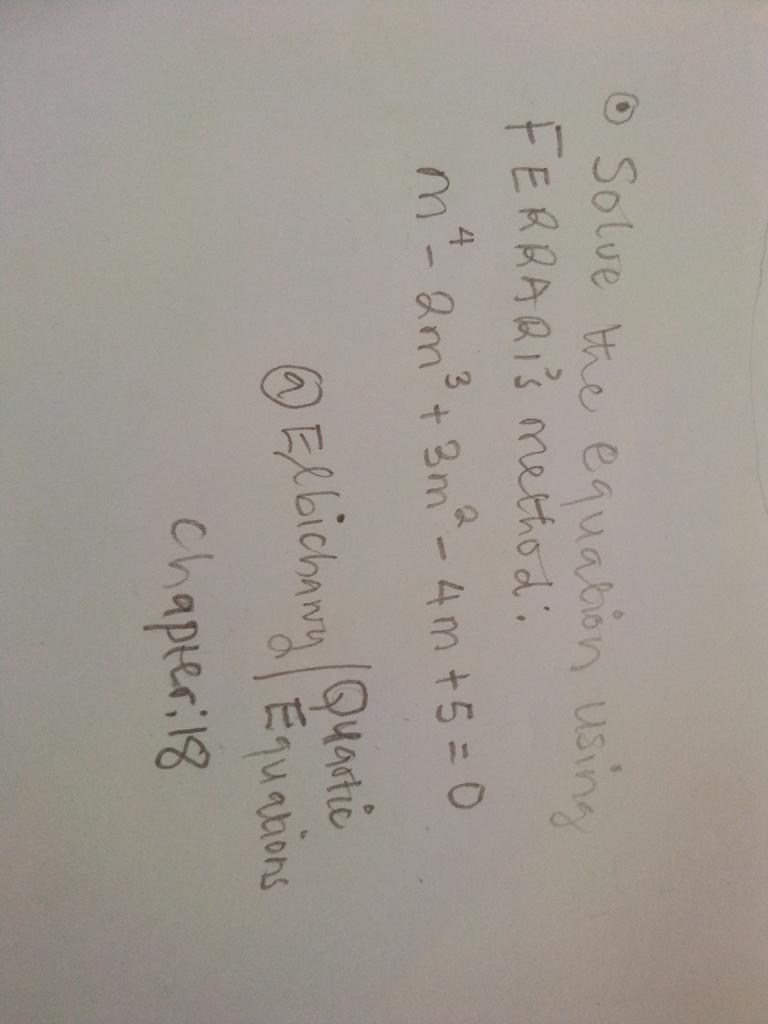 ⊙ Solve the equation using
FERRARI's method:
m⁴ - 2m³ + 3m² - 4m + 5 = 0
@Elbichawy / Quartic
Equations
Chapter: 18